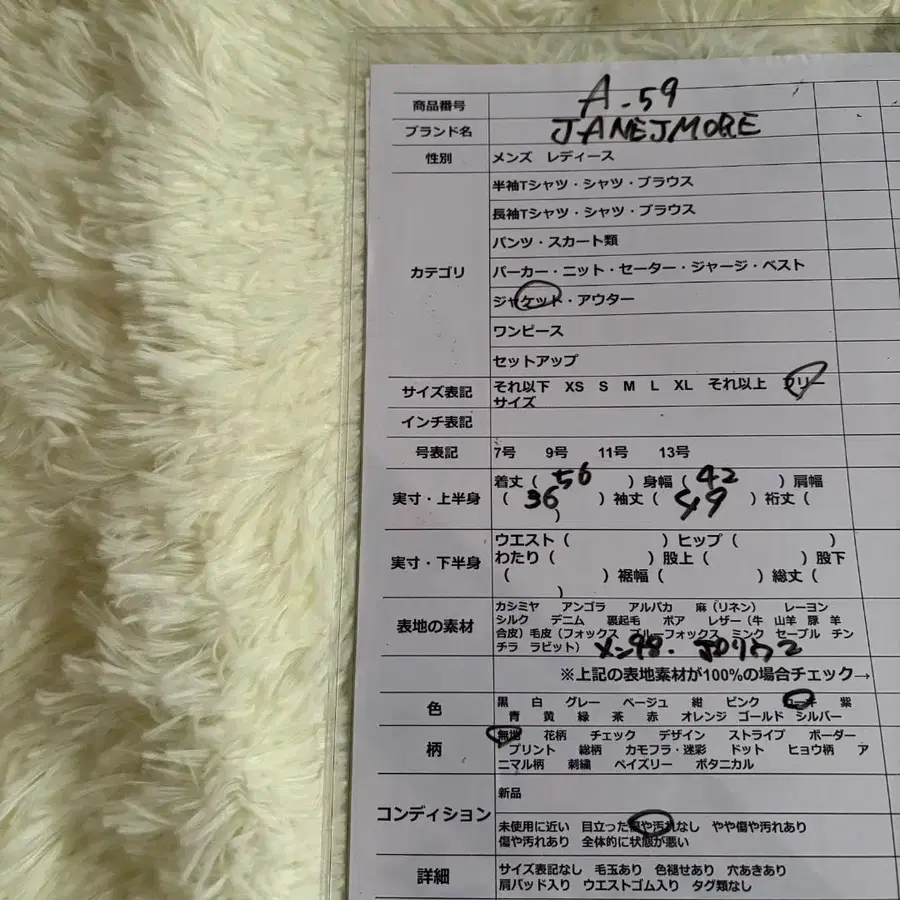 商品番号 A-59
ブランド名 JANEJMORE
性別 メンズ レディース
カテゴリ
半袖Tシャツ・シャツ・ブラウス
長袖Tシャツ・シャツ・ブラウス
パンツ・スカート類
パーカー・ニット・セーター・ジャージ・ベスト
ジャケット・アウター
ワンピース
セットアップ
サイズ表記 それ以下 XS S M L XL それ以上 フリー
サイズ
インチ表記
号表記 7号 9号 11号 13号
実寸・上半身
着丈(56)身幅(42)肩幅
(36)袖丈(49)裄丈(
)
実寸・下半身
ウエスト( )ヒップ( )
わたり( )股上( )股下
( )裾幅( )総丈(
)
表地の素材
カシミヤ アンゴラ アルパカ 麻(リネン) レーヨン
シルク デニム 裏起毛 ボア レザー(牛 山羊 豚 羊
合皮)毛皮(フォックス ブルーフォックス ミンク セーブル チン
チラ ラビット) メン98.
※上記の表地素材が100%の場合チェック→
色
黒 白 グレー ベージュ 紺 ピンク 紫
青 黄 緑 茶 赤 オレンジ ゴールド シルバー
柄
無地 花柄 チェック デザイン ストライプ ボーダー
プリント 総柄 カモフラ・迷彩 ドット ヒョウ柄 ア
ニマル柄 刺繍 ペイズリー ボタニカル
コンディション
新品
未使用に近い 目立った傷や汚れなし やや傷や汚れあり
傷や汚れあり 全体的に状態が悪い
詳細
サイズ表記なし 毛玉あり 色褪せあり 穴あきあり
肩パッド入り ウエストゴム入り タグ類なし